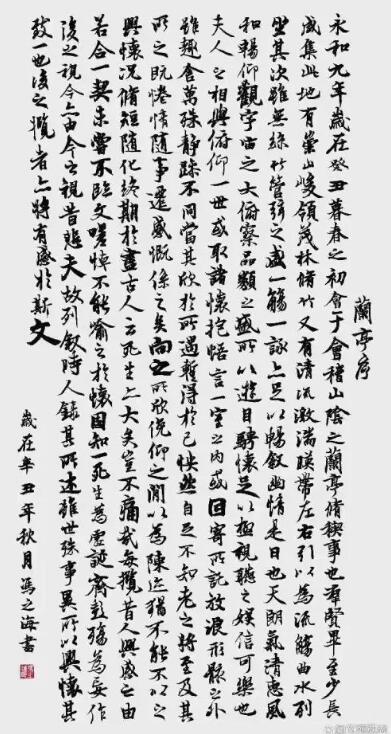 蘭亭序
永和九年歲在癸丑暮春之初會于會稽山陰之蘭亭脩稧事也羣賢畢至少長
咸集此地有崇山峻領茂林脩竹又有清流激湍暎帶左右引以為流觴曲水列
坐其次雖無絲竹管弦之盛一觴一詠亦足以暢叙幽情是日也天朗氣清惠風
和暢仰觀宇宙之大俯察品類之盛所以遊目騁懷足以極視聽之娛信可樂也
夫人之相與俯仰一世或取諸懷抱悟言一室之內或因寄所託放浪形骸之外
雖趣舍萬殊靜躁不同當其欣於所遇暫得於己怏然自足不知老之將至及其
所之既惓情隨事遷感慨係之矣向之所欣俛仰之閒以為陳迹猶不能不以之
興懷況脩短隨化終期於盡古人云死生亦大矣豈不痛哉每攬昔人興感之由
若合一契未嘗不臨文嗟悼不能喻之於懷固知一死生為虛誕齊彭殤為妄作
後之視今亦由今之視昔悲夫故列叙時人錄其所述雖世殊事異所以興懷其
致一也後之攬者亦將有感於斯文
歲在辛丑年秋月馮之海書